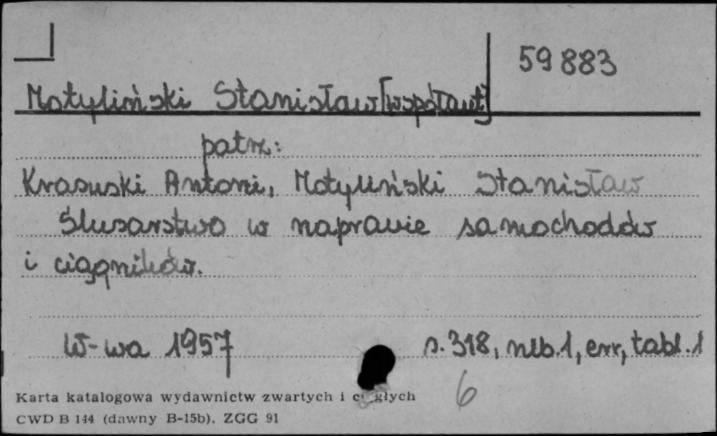 59883
Motyliński Stanisław [współaut]
patrz:
Krasuski Antoni, Motyliński Stanisław
Ślusarstwo w naprawie samochodów
i ciągników.
W-wa 1957
s. 318, nlb. 1, err, tabl. 1
6
Karta katalogowa wydawnictw zwartych i ciągłych
CWD B 144 (dawny B-15b). ZGG 91